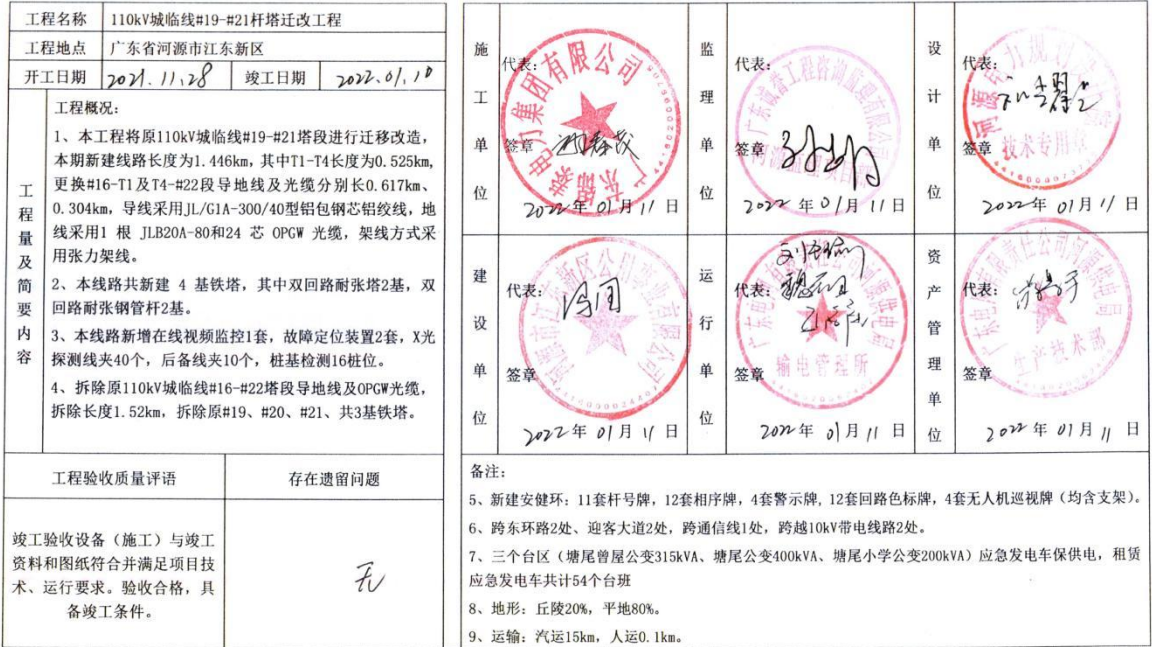 工程名称 110kV城临线#19-#21杆塔迁改工程
工程地点 广东省河源市江东新区
开工日期 2021.11.28 竣工日期 2022.01.10
工程量及简要内容
工程概况:
1、本工程将原110kV城临线#19-#21塔段进行迁移改造,
本期新建线路长度为1.446km,其中T1-T4长度为0.525km,
更换#16-T1及T4-#22段导地线及光缆分别长0.617km、
0.304km,导线采用JL/G1A-300/40型铝包钢芯铝绞线,地
线采用1 根 JLB20A-80和24 芯 OPGW 光缆,架线方式采
用张力架线。
2、本线路共新建 4 基铁塔,其中双回路耐张塔2基,双
回路耐张钢管杆2基。
3、本线路新增在线视频监控1套,故障定位装置2套,X光
探测线夹40个,后备线夹10个,桩基检测16桩位。
4、拆除原110kV城临线#16-#22塔段导地线及OPGW光缆,
拆除长度1.52km,拆除原#19、#20、#21、共3基铁塔。
工程验收质量评语 存在遗留问题
竣工验收设备(施工)与竣工
资料和图纸符合并满足项目技
术、运行要求。验收合格,具
备竣工条件。
无
施工单位
代表:
签章
广东锦泰电力集团有限公司
2022年 01月 11 日
监理单位
代表:
签章
广东诚誉工程咨询监理有限公司
2022 年 01月 11日
设计单位
代表:
签章
技术专用章
2022年 01月 11 日
建设单位
代表:
签章
2022年 01月 11 日
运行单位
代表:
签章
输电管理所
2022年 01月 11 日
资产管理单位
代表:
签章
生产技术部
2022 年 01月 11 日
备注:
5、新建安健环:11套杆号牌,12套相序牌,4套警示牌,12套回路色标牌,4套无人机巡视牌(均含支架)。
6、跨东环路2处、迎客大道2处,跨通信线1处,跨越10kV带电线路2处。
7、三个台区(塘尾曾屋公变315kVA、塘尾公变400kVA、塘尾小学公变200kVA)应急发电车保供电,租赁
应急发电车共计54个台班
8、地形:丘陵20%,平地80%。
9、运输:汽运15km,人运0.1km。